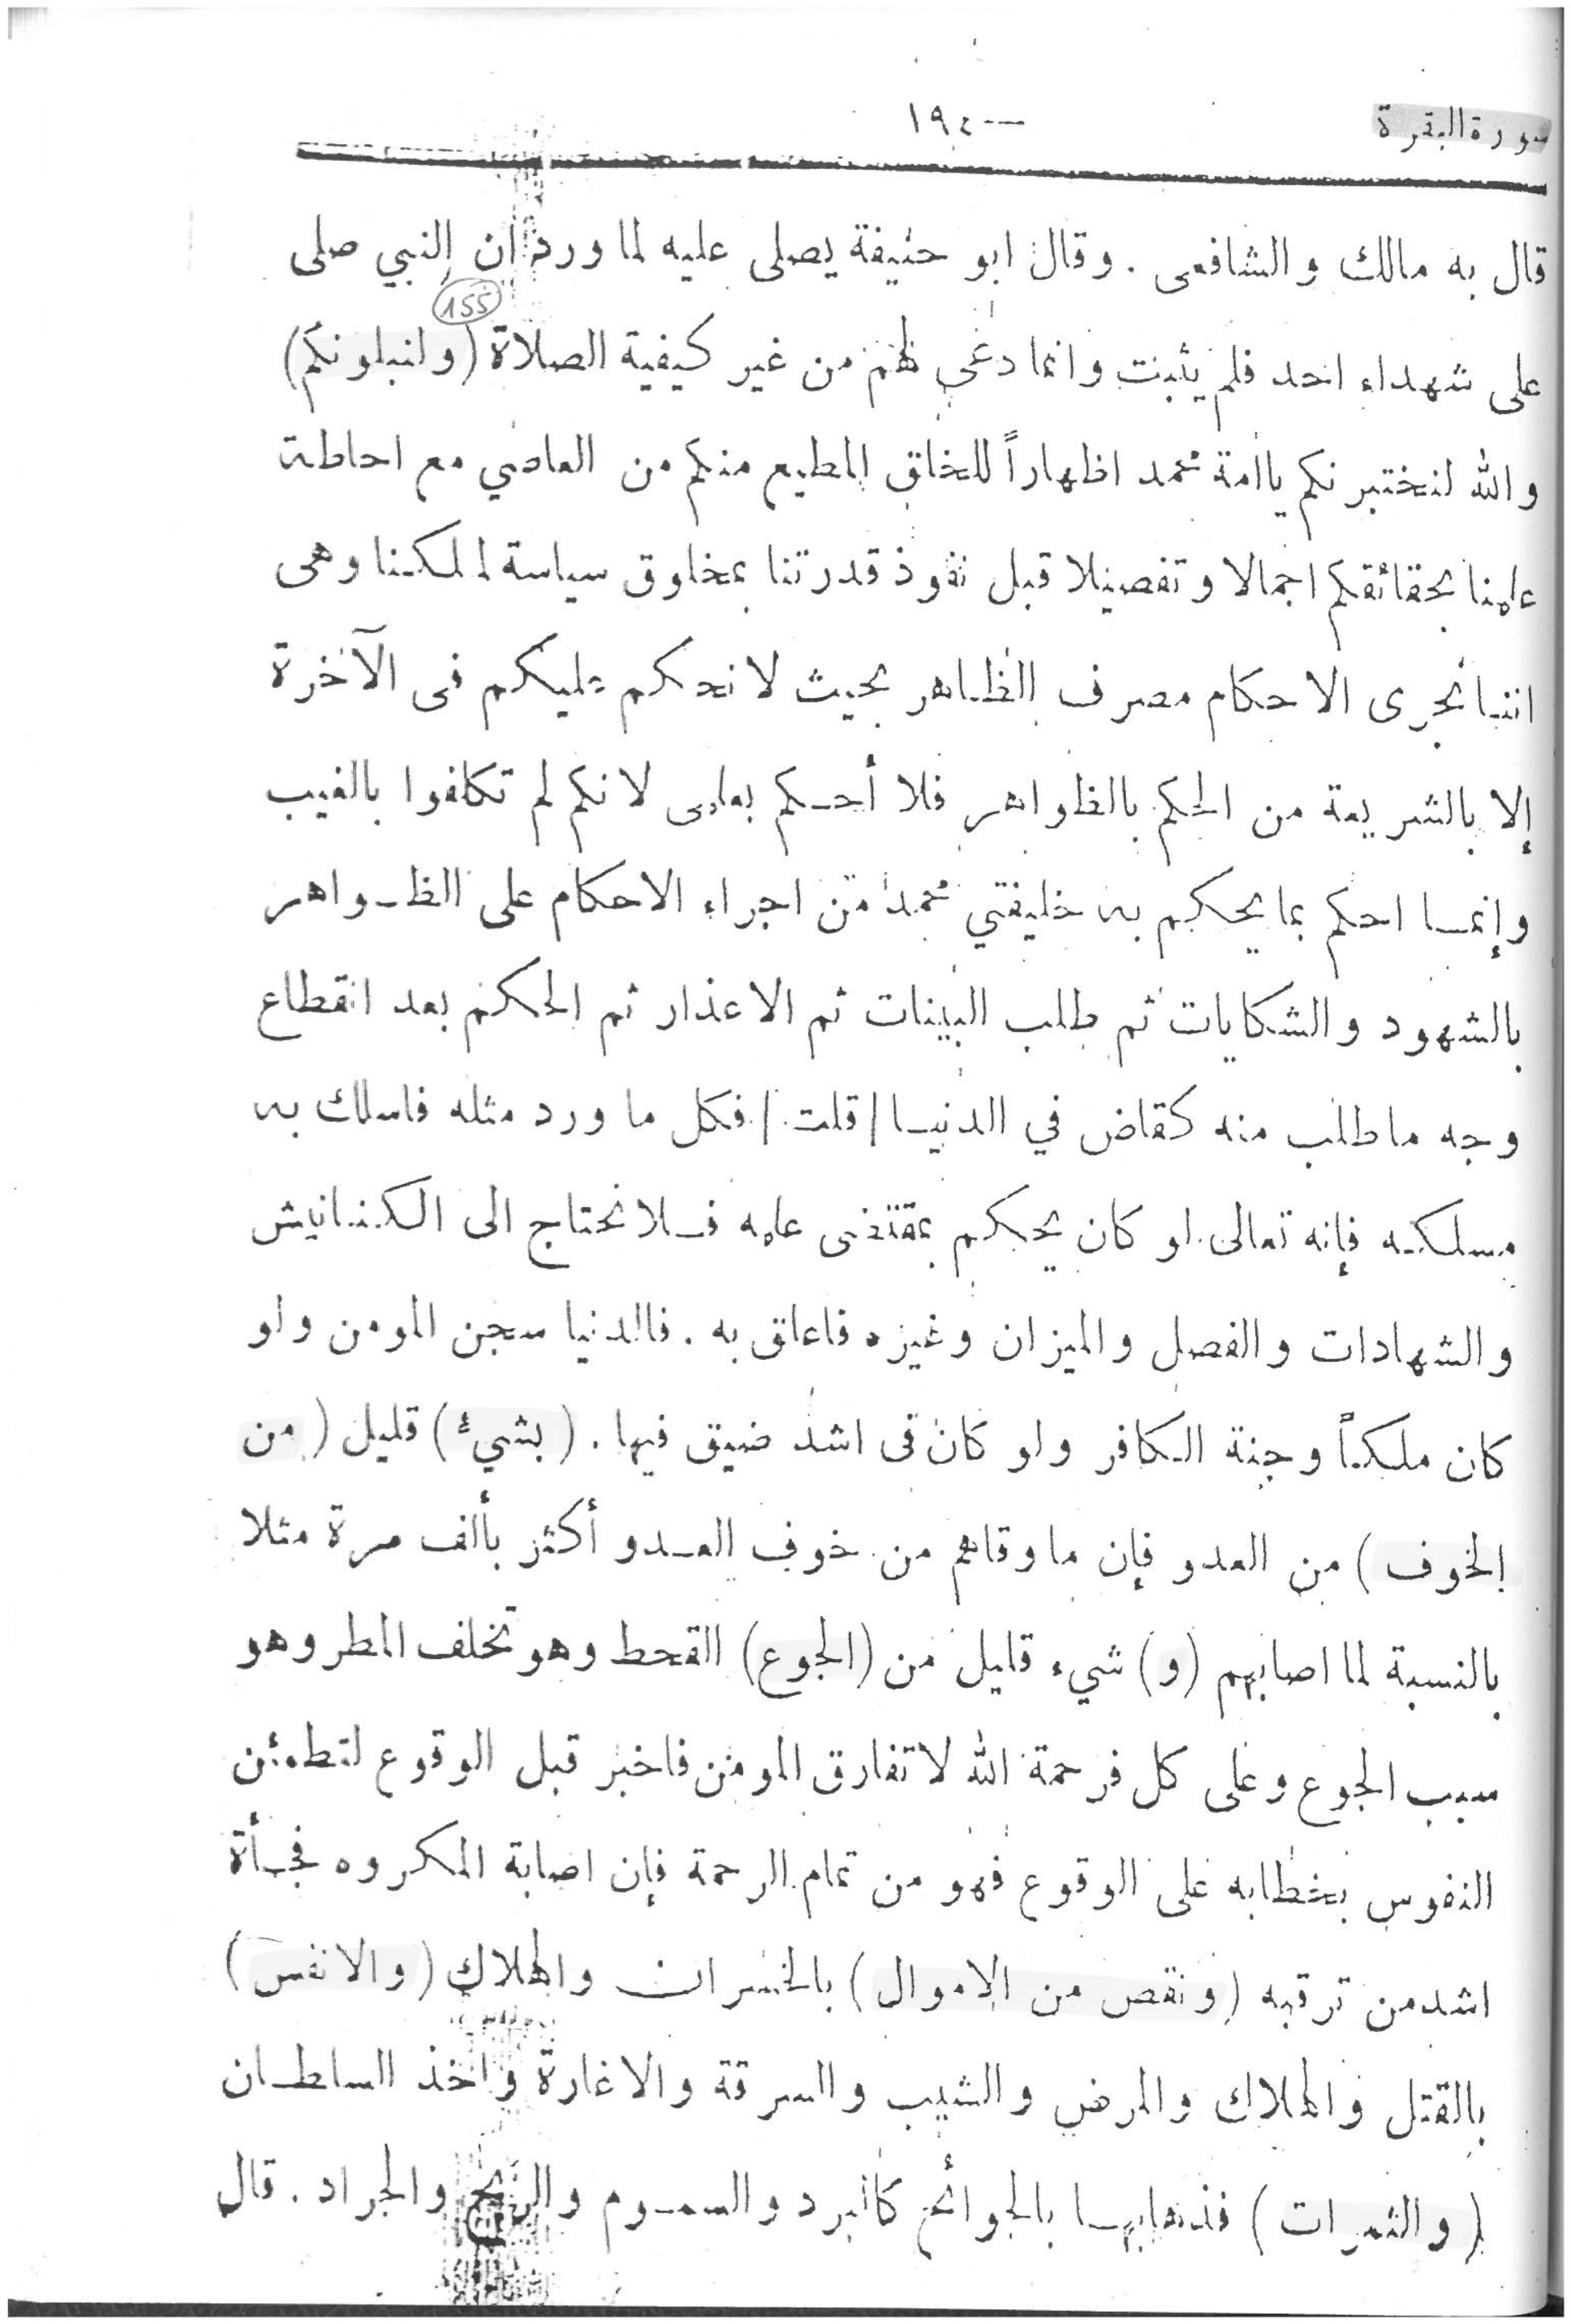 سورة البقرة
— ١٩٤
قال به مالك والشافعى . وقال ابو حنيفة يصلى عليه لما ورد ان النبي صلى
155
على شهداء احد فلم يثبت وانما دعى لهم من غير كيفية الصلاة (ولنبلونكم)
والله لنختبرنكم ياامة محمد اظهاراً للخلق المطيع منكم من العاصي مع احاطة
علمنا بحقائقكم اجمالا وتفصيلا قبل نفوذ قدرتنا بمخلوق سياسة لملكنا وهى
اننا نجرى الاحكام مصرف الظاهر بحيث لا نحكم عليكم فى الآخرة
إلا بالشريعة من الحكم بالظواهر فلا أحكم بعلمى لانكم لم تكلفوا بالغيب
وإنما احكم بما يحكم به خليفتي محمد من اجراء الاحكام على الظواهر
بالشهود والشكايات ثم طلب البينات ثم الاعذار ثم الحكم بعد انقطاع
وجه ما طلب منه كقاض في الدنيا / قلت / فكل ما ورد مثله فاسلك به
مسلكه فإنه تعالى لو كان يحكم بمقتضى علمه فلا نحتاج الى الكنانيش
والشهادات والفصل والميزان وغيره فاعلق به . فالدنيا سجن المومن ولو
كان ملكاً وجنة الكافر ولو كان فى اشد ضيق فيها . (بشيء) قليل (من
الخوف) من العدو فإن ما وقاهم من خوف العدو أكثر بألف مرة مثلا
بالنسبة لما اصابهم (و) شيء قليل من (الجوع) القحط وهو تخلف المطر وهو
سبب الجوع وعلى كل فرحمة الله لا تفارق المومن فاخبر قبل الوقوع لتطمئن
النفوس بخطابه على الوقوع فهو من تمام الرحمة فإن اصابة المكروه فجأة
اشد من ترقبه (ونقص من الاموال) بالخسران والهلاك (والانفس)
بالقتل والهلاك والمرض والشيب والسرقة والاغارة واخذ السلطان
(والثمرات) فذهابها بالجوائح كالبرد والسموم والريح والجراد . قال